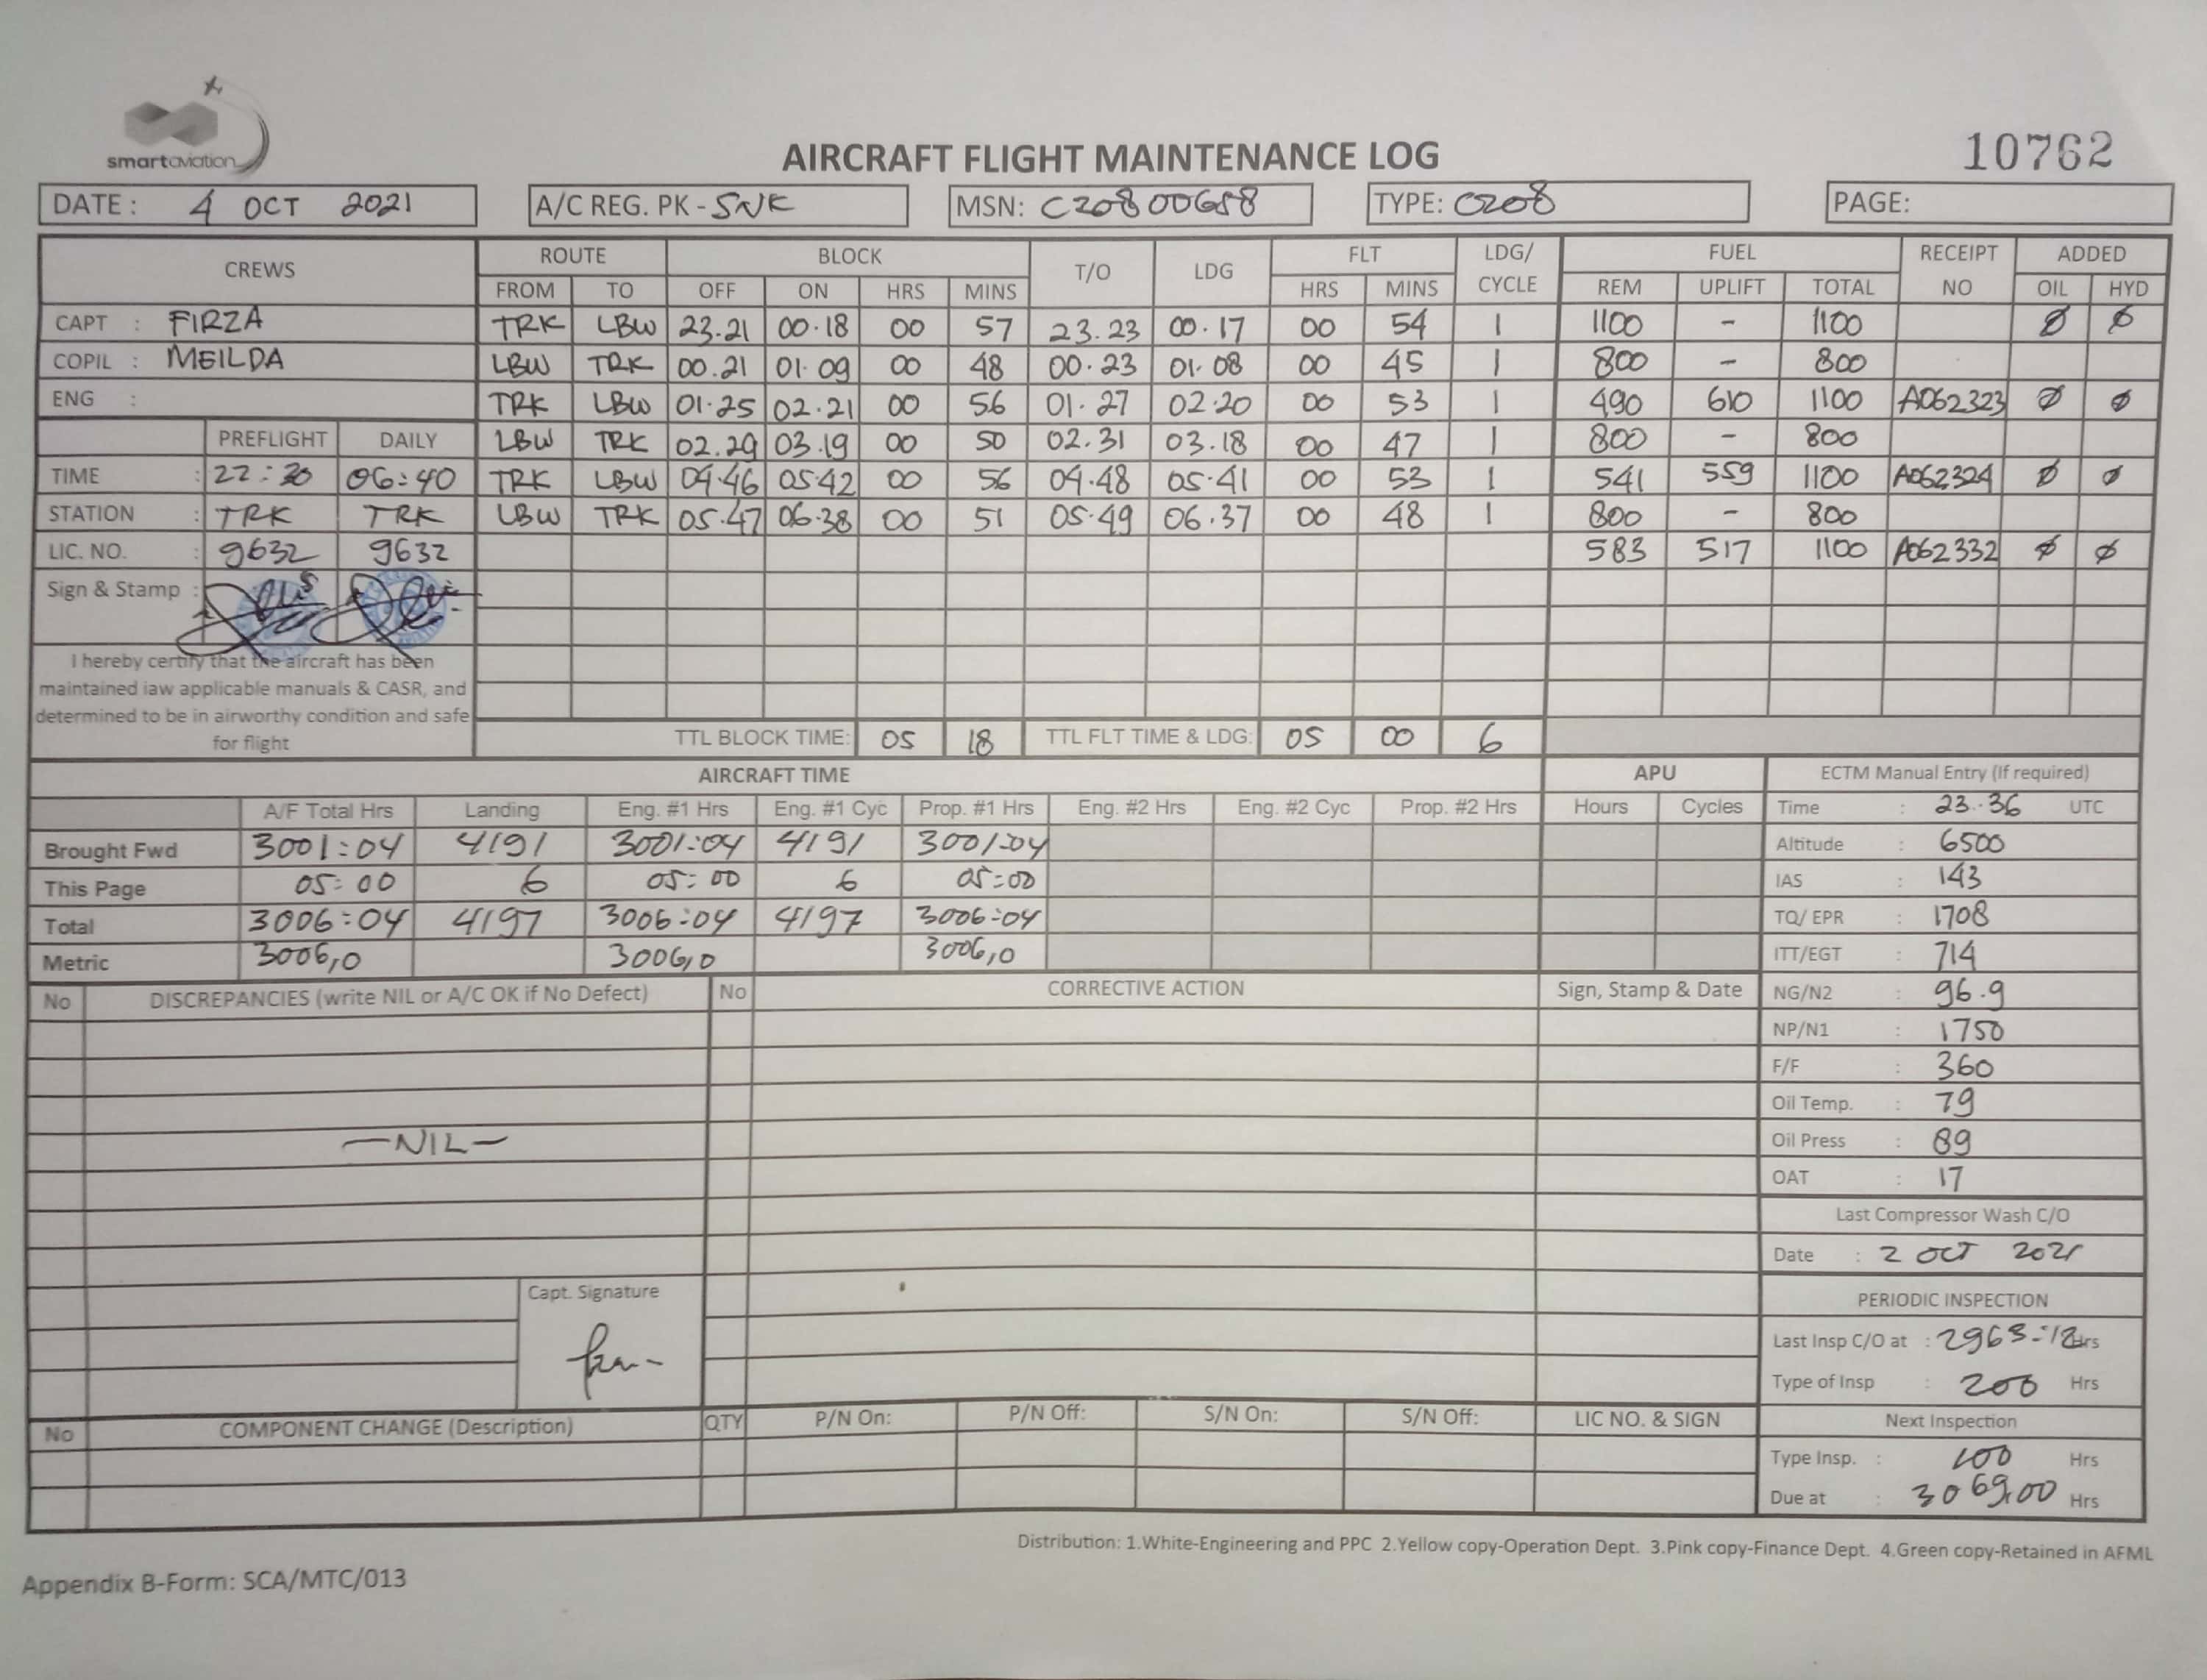 smartaviation
AIRCRAFT FLIGHT MAINTENANCE LOG
10762
DATE: 4 OCT 2021 A/C REG. PK - SNK MSN: C20800658 TYPE: C208 PAGE:
CREWS ROUTE BLOCK T/O LDG FLT LDG/ CYCLE FUEL RECEIPT NO ADDED
FROM TO OFF ON HRS MINS HRS MINS REM UPLIFT TOTAL OIL HYD
CAPT : FIRZA TRK LBW 23.21 00.18 00 57 23.23 00.17 00 54 1 1100 - 1100 Ø Ø
COPIL : MEILDA LBW TRK 00.21 01.09 00 48 00.23 01.08 00 45 1 800 - 800
ENG : TRK LBW 01.25 02.21 00 56 01.27 02.20 00 53 1 490 610 1100 A062323 Ø Ø
PREFLIGHT DAILY LBW TRK 02.29 03.19 00 50 02.31 03.18 00 47 1 800 - 800
TIME : 22:30 06:40 TRK LBW 04.46 05.42 00 56 04.48 05.41 00 53 1 541 559 1100 A062324 Ø Ø
STATION : TRK TRK LBW TRK 05.47 06.38 00 51 05.49 06.37 00 48 1 800 - 800
LIC. NO. : 9632 9632 583 517 1100 A062332 Ø Ø
Sign & Stamp :
I hereby certify that the aircraft has been
maintained iaw applicable manuals & CASR, and
determined to be in airworthy condition and safe
for flight
TTL BLOCK TIME: 05 18 TTL FLT TIME & LDG: 05 00 6
AIRCRAFT TIME APU ECTM Manual Entry (If required)
A/F Total Hrs Landing Eng. #1 Hrs Eng. #1 Cyc Prop. #1 Hrs Eng. #2 Hrs Eng. #2 Cyc Prop. #2 Hrs Hours Cycles Time : 23.36 UTC
Brought Fwd 3001:04 4191 3001:04 4191 3001:04 Altitude : 6500
This Page 05:00 6 05:00 6 05:00 IAS : 143
Total 3006:04 4197 3006:04 4197 3006:04 TQ/ EPR : 1708
Metric 3006,0 3006,0 3006,0 ITT/EGT : 714
No DISCREPANCIES (write NIL or A/C OK if No Defect) No CORRECTIVE ACTION Sign, Stamp & Date NG/N2 : 96.9
NP/N1 : 1750
F/F : 360
Oil Temp. : 79
—NIL— Oil Press : 89
OAT : 17
Last Compressor Wash C/O
Date : 2 OCT 2021
Capt. Signature
PERIODIC INSPECTION
Last Insp C/O at : 2963:12 Hrs
Type of Insp : 200 Hrs
No COMPONENT CHANGE (Description) QTY P/N On: P/N Off: S/N On: S/N Off: LIC NO. & SIGN Next Inspection
Type Insp. : 100 Hrs
Due at : 3069,00 Hrs
Distribution: 1.White-Engineering and PPC 2.Yellow copy-Operation Dept. 3.Pink copy-Finance Dept. 4.Green copy-Retained in AFML
Appendix B-Form: SCA/MTC/013